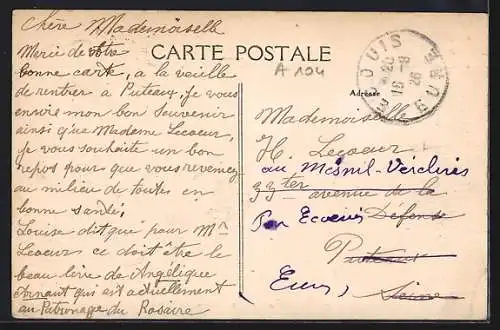 Chère Mademoiselle
Merci de votre
bonne carte, a la veille
de rentrer à Puteaux, je vous
envoie mon bon souvenir
ainsi que Madame Lecoeur,
je vous souhaite un bon
repos pour que vous reveniez
au milieu de toutes en
bonne santé.
Louise dit que pour Mme
Lecoeur ce doit être le
beau-père de Angélique
Arnaut qui est actuellement
au Patronage du Rosaire
CARTE POSTALE
A 104
Adresse
OUIS
EURE
Mademoiselle
H. Lecoeur
au Mesnil-Verclives
33 ter avenue de la
Par Ecouis Défense
Puteaux
Eure, Seine